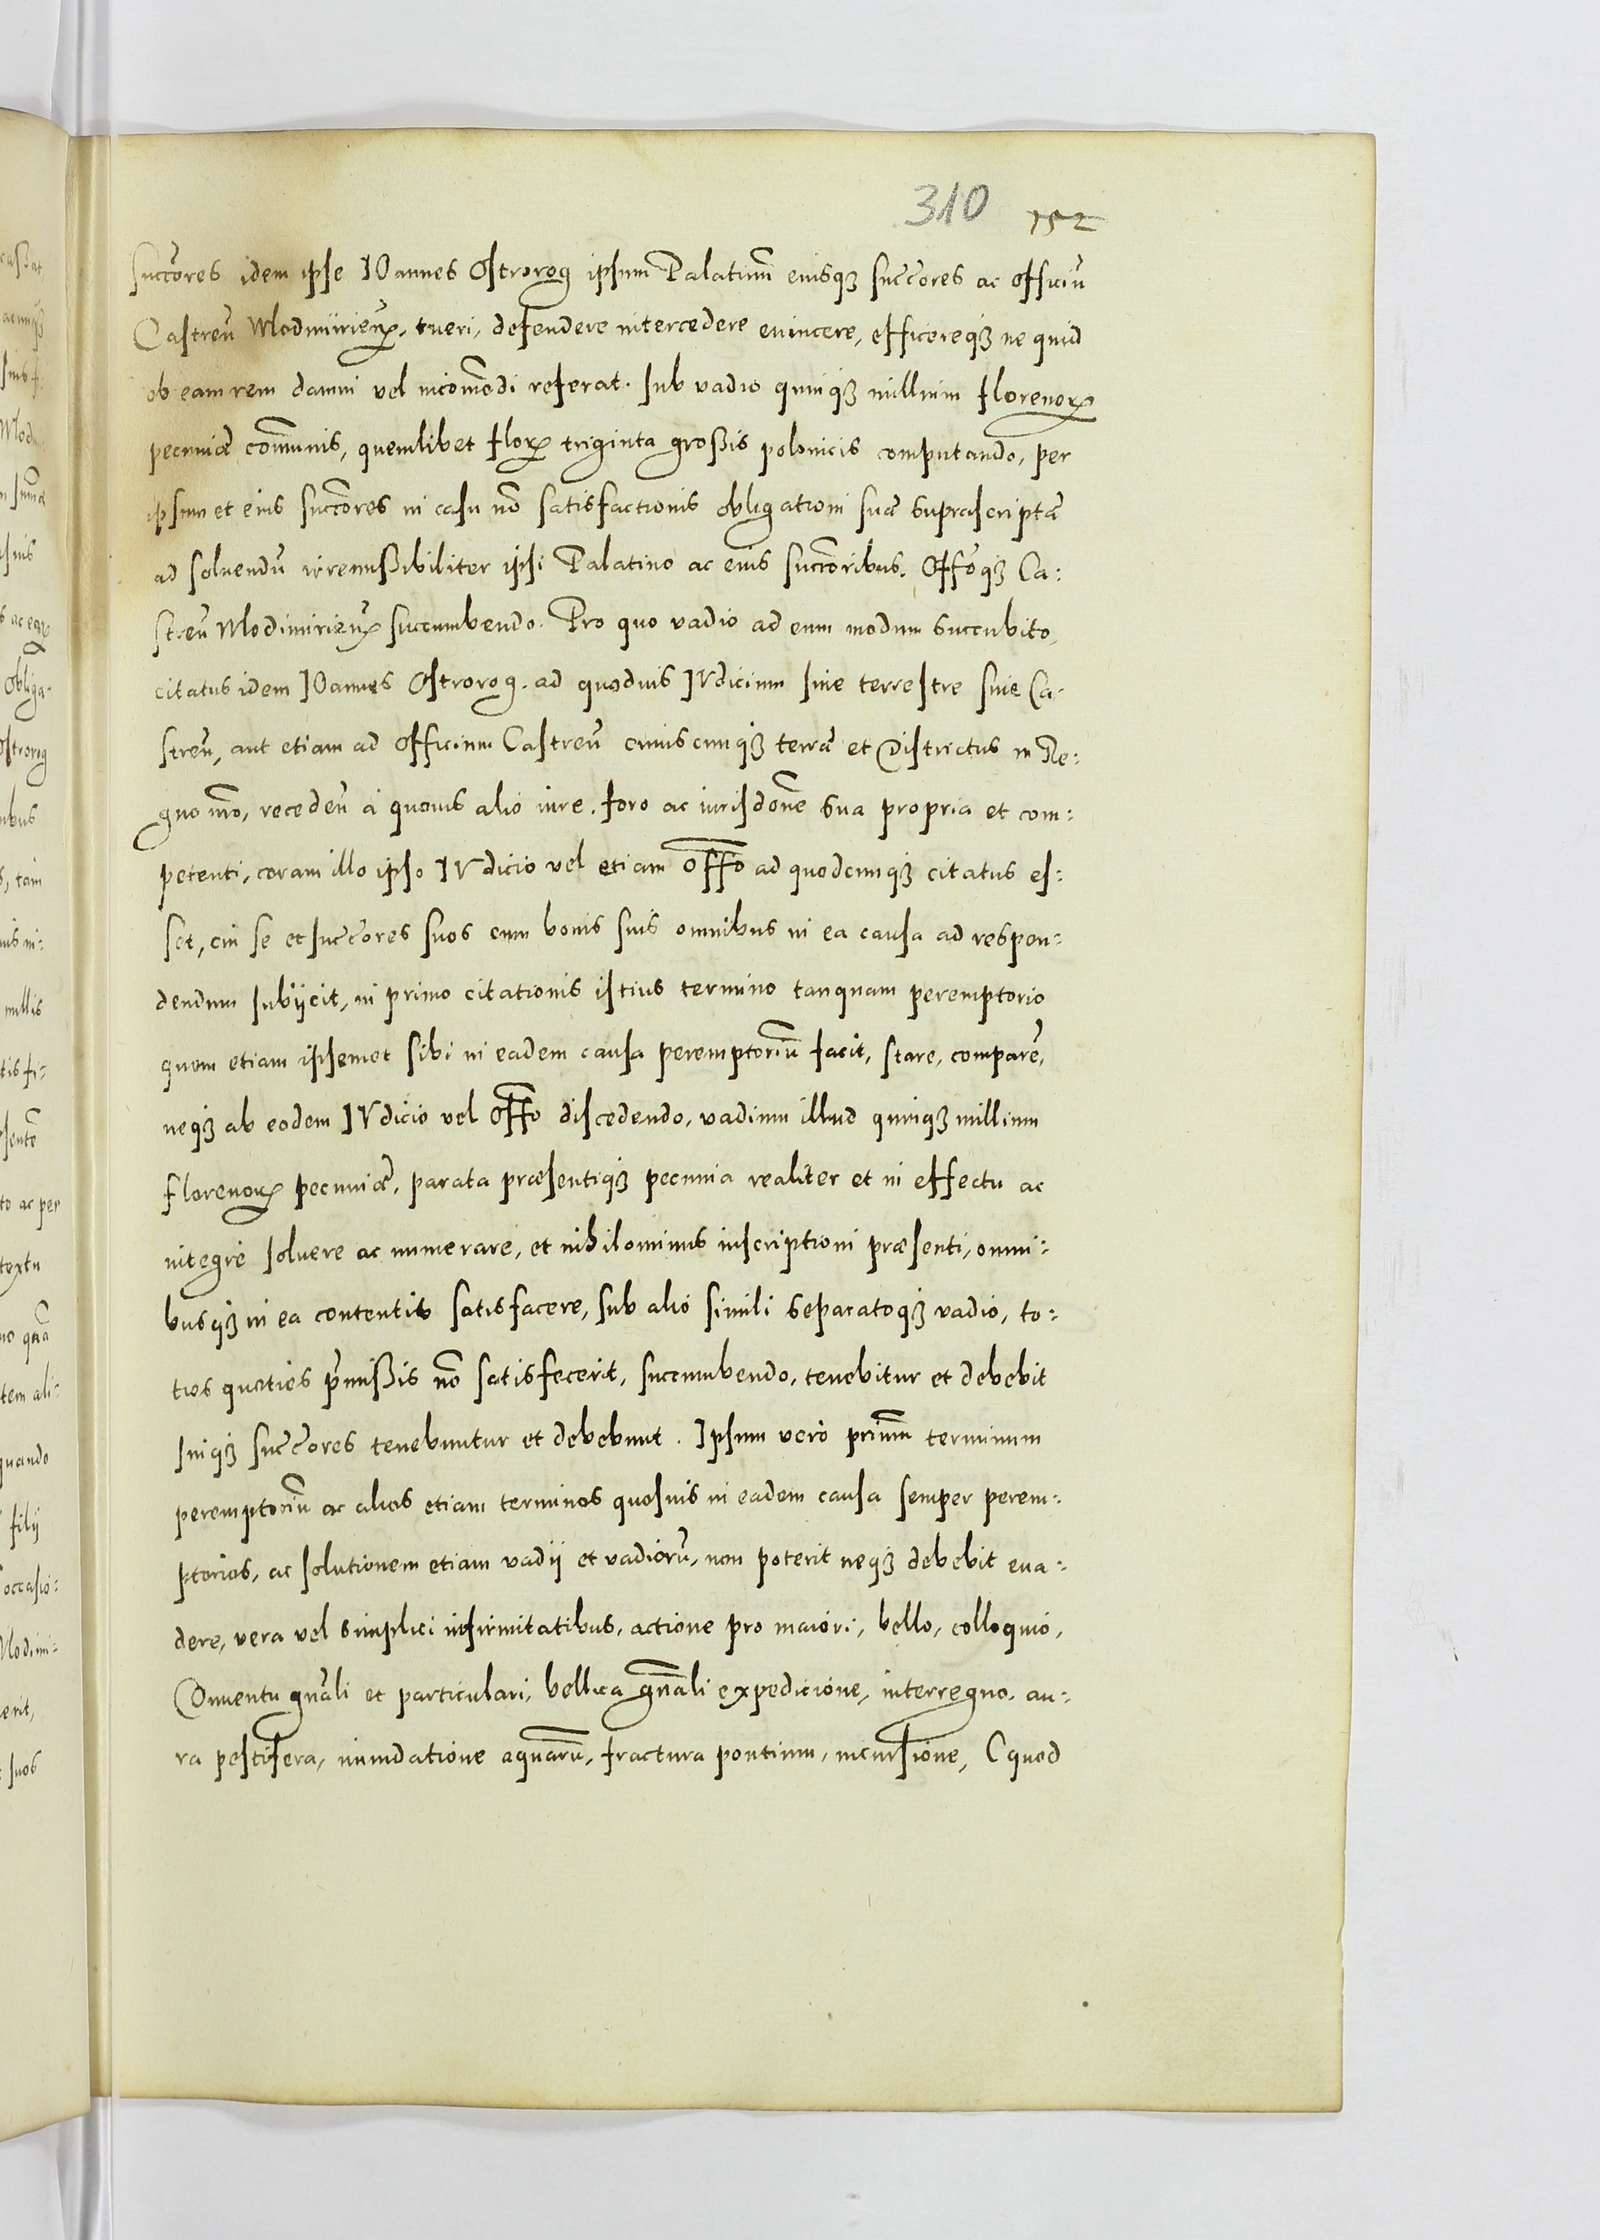 310 152
succores idem ipse IOannes Ostrorog ipsum Palatinũ eiusqꝫ successores ac officiũ
Castreñ Wlodimirieñ, tueri, defendere intercedere euincere, efficereqꝫ ne quid
ob eam rem damni vel incom̃odi referat. sub vadio quinqꝫ millium florenoꝝ
pecuniæ com̃unis, quemlibet floꝝ triginta großis polonicis computando, per
ipsum et eius succores in casu nõ satisfactionis obligationi suæ suprascriptæ
ad soluendũ irremißibiliter ipsi Palatino ac eius succoribus, Offoqꝫ Ca:
streñ Wlodimirieñ succumbendo. Pro quo vadio ad eum modum succubito,
citatus idem IOannes Ostrorog. ad quoduis IVdicium siue terrestre siue Ca:
streñ, aut etiam ad officium Castreñ cuiuscunqꝫ terræ et districtus in Re:
gno nr̃o, recedeñ à quouis alio iure. foro ac iurisdõne sua propria et com:
petenti, coram illo ipso IVdicio vel etiam offõ ad quodcunqꝫ citatus es:
set, cui se et succores suos cum bonis suis omnibus in ea causa ad respon:
dendum subijcit, in primo citationis istius termino tanquam peremptorio
quem etiam ipsemet sibi in eadem causa peremptoriũ facit, stare, comparẽ,
neqꝫ ab eodem IVdicio vel Offõ discedendo, vadium illud quinqꝫ millium
florenoꝝ pecuniæ, parata præsentiqꝫ pecunia realiter et in effectu ac
integrè soluere ac numerare, et nihilominus inscriptioni præsenti, omni:
busqꝫ in ea contentis satisfacere, sub alio simili separatoqꝫ vadio, to:
ties quoties p̃mißis nõ satisfecerit, succumbendo, tenebitur et debebit
suiqꝫ succores tenebuntur et debebunt. Ipsum verò primũ terminum
peremptoriũ ac alios etiam terminos quosuis in eadem causa semper perem:
ptorios, ac solutionem etiam vadij et vadiorũ, non poterit neqꝫ debebit eua:
dere, vera vel simplici infirmitatibus, actione pro maiori, bello, colloquio,
Conuentu gñali et particulari, bellica gñali expeditione, interregno. au:
ra pestifera, inundatione aquarũ, fractura pontium, incursione, (quod